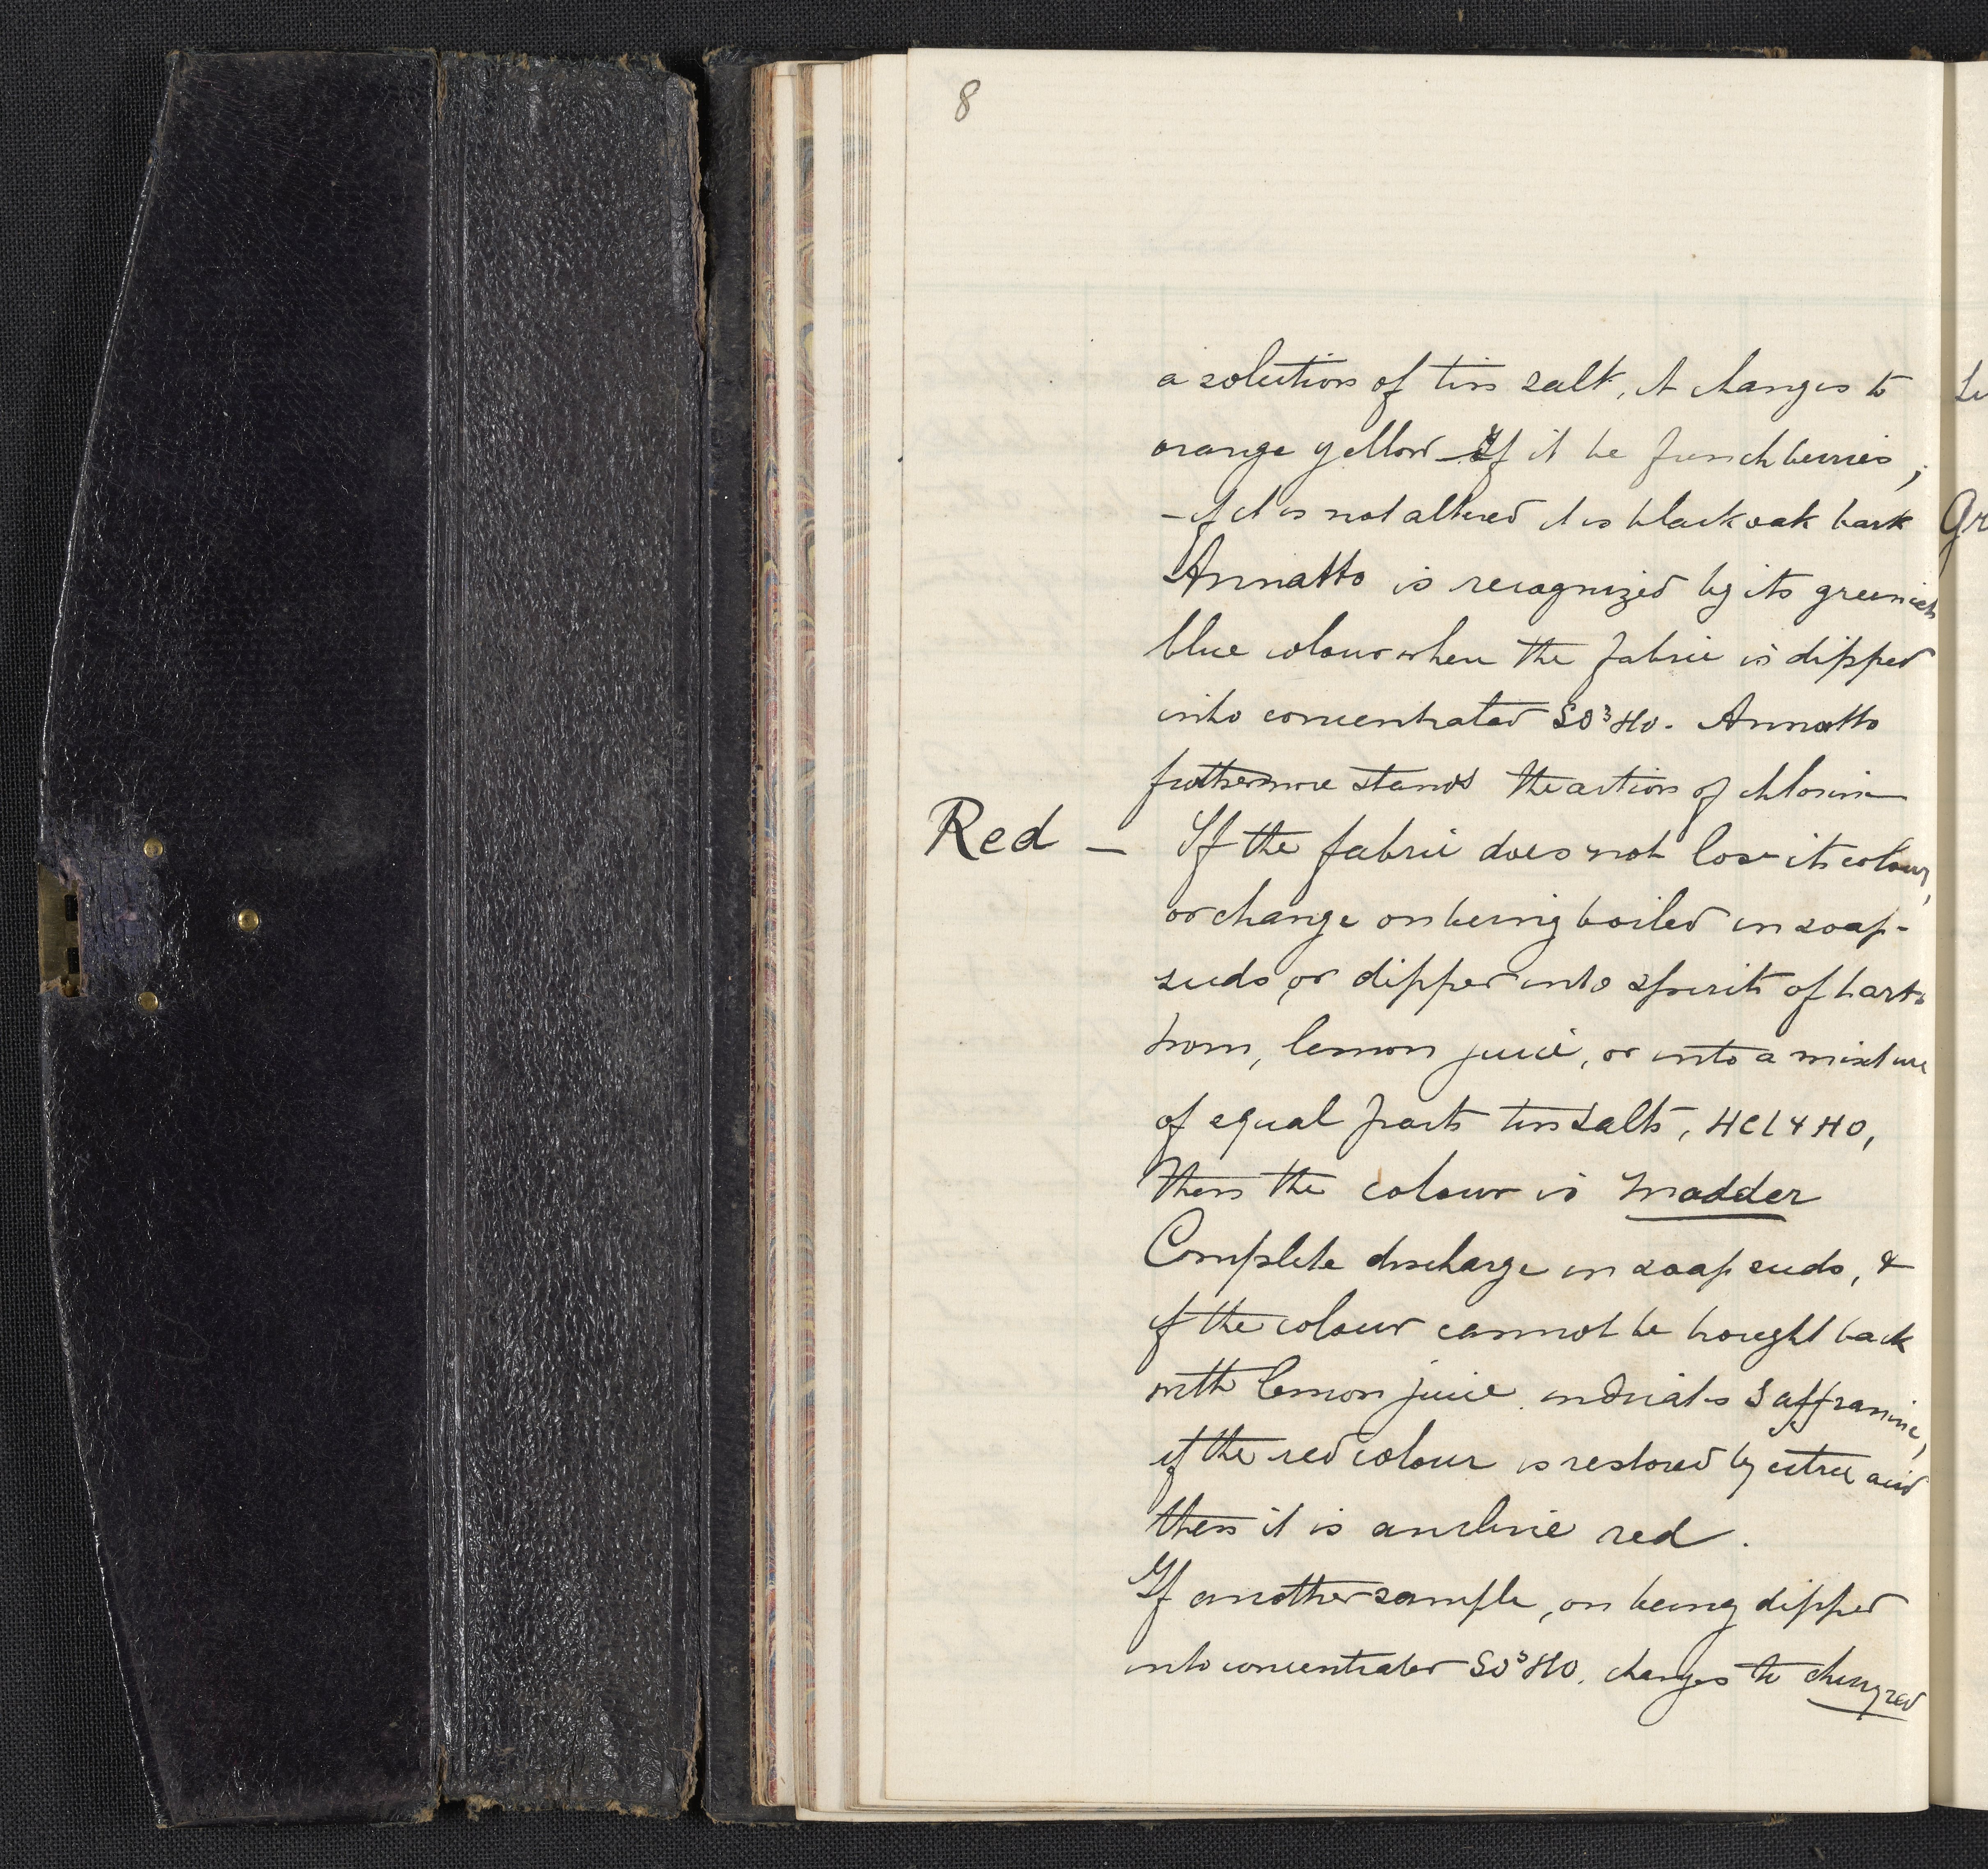 8
a solution of tin salt, it changes to
orange yellow - If it be french berries;
- if it is not altered it is black oak bark
Annatto is recognized by its greenish
blue colour when the fabric is dipped
into concentrated SO³HO. Annatto
futhermore stands the action of chlorine
Red - If the fabric does not lose its colour,
or change on being boiled in soap-
suds, or dipped into spirits of harts
horn, lemon juice, or into a mixture
of equal parts tin salts, HCl & HO,
then the colour is madder
Complete discharge in soap suds, &
if the colour cannot be brought back
with lemon juice indicates Saffranine,
if the red colour is restored by citric acid
then it is aniline red.
If another sample, on being dipped
into concentrated SO³HO. changes to cherry red
Gr